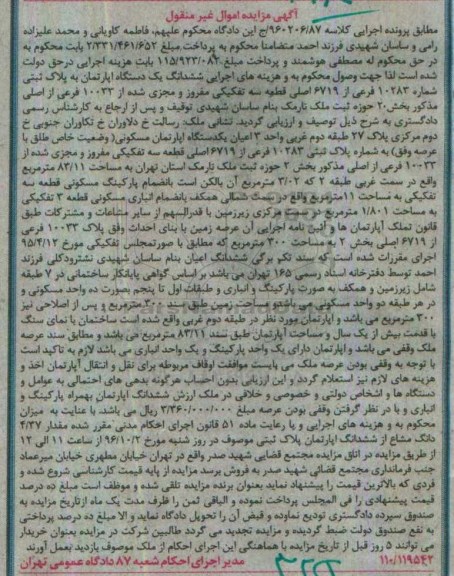 آگهی مزایده اموال غیر منقول
مطابق پرونده اجرایی کلاسه ۹۶۰۲۰۶/۸۷ج این دادگاه محکوم علیهم، فاطمه کاویانی و محمد علیزاده
رامی و ساسان شهیدی فرزند احمد متضامنا محکوم به پرداخت مبلغ ۲/۳۳۱/۴۶۱/۶۵۲ بابت محکوم به
در حق محکوم له مصطفی هوشمند و پرداخت مبلغ ۱۱۵/۹۲۳/۰۸۲ بابت هزینه اجرایی درحق دولت
شده است لذا جهت وصول محکوم به و هزینه های اجرایی ششدانگ یک دستگاه اپارتمان به پلاک ثبتی
شماره ۱۰۲۸۳ فرعی از ۶۷۱۹ اصلی قطعه سه تفکیکی مفروز و مجزی شده از ۱۰۰۳۳ فرعی از اصلی
مذکور بخش ۲۰ حوزه ثبت ملک نارمک بنام ساسان شهیدی توقیف و پس از ارجاع به کارشناس رسمی
دادگستری به شرح ذیل توصیف و ارزیابی گردید. نشانی ملک: رسالت خ دلاوران خ تکاوران جنوبی خ
دوم مرکزی پلاک ۲۷ طبقه دوم غربی واحد ۳ اعیان یکدستگاه اپارتمان مسکونی( وضعیت خاص طلق با
عرصه وقف) به شماره پلاک ثبتی ۱۰۲۸۳ فرعی از ۶۷۱۹ اصلی قطعه سه تفکیکی مفروز و مجزی شده از
۱۰۰۳۳ فرعی از اصلی مذکور بخش ۲ حوزه ثبت ملک نارمک استان تهران به مساحت ۸۳/۱۱ مترمربع
واقع در سمت غربی طبقه ۲ که ۳/۰۲ مترمربع آن بالکن است بانضمام پارکینگ مسکونی قطعه سه
تفکیکی به مساحت ۱۱مترمربع واقع در سمت شمالی همکف بانضمام انباری مسکونی قطعه ۳ تفکیکی
به مساحت ۱/۸۰۱ مترمربع در سمت مرکزی زیرزمین با قدرالسهم از سایر مشاعات و مشترکات طبق
قانون تملک آپارتمان ها و آئین نامه اجرایی آن عرصه زمین با بنای احداث وفق پلاک ۱۰۰۳۳ فرعی
از ۶۷۱۹ اصلی بخش ۲ به مساحت ۳۰۰ مترمربع که مطابق با صورتمجلس تفکیکی مورخ ۹۵/۴/۱۲
اجرای مقررات شده است که سند تکم برگی ششدانگ اعیان بنام ساسان شهیدی نشترودکلی فرزند
احمد توسط دفترخانه اسناد رسمی ۱۶۵ تهران می باشد بر اساس گواهی پایانکار ساختمانی در ۷ طبقه
شامل زیرزمین و همکف به صورت پارکینگ و انباری و طبقات اول تا پنجم بصورت ده واحد مسکونی و
در هر طبقه دو واحد مسکونی می باشد و مساحت زمین طبق سند ۳۰۰ مترمربع و پس از اصلاحی نیز
۳۰۰ مترمربع می باشد و اپارتمان مورد نظر در طبقه دوم غربی واقع شده است ساختمان با نمای سنگ
با قدمت بیش از یک سال و مساحت آپارتمان طبق سند ۸۳/۱۱ مترمربع می باشد و مطابق سند عرصه
ملک وقفی می باشد و اپارتمان دارای یک واحد پارکینگ و یک واحد انباری می باشد لازم به تاکید است
با توجه به وقفی بودن عرصه ملک می پایست موافقت اوقاف مربوطه برای نقل و انتقال آپارتمان اخذ و
هزینه های لازم نیز استعلام گردد و این ارزیابی بدون احتساب هرگونه بدهی های احتمالی به عوامل و
دستگاه ها و اشخاص دولتی و خصوصی و خلافی در ملک ارزش ششدانگ اپارتمان بهمراه پارکینگ و
انباری و با در نظر گرفتن وقفی بودن عرصه مبلغ ۳/۳۶۰/۰۰۰/۰۰۰ ریال می باشد. با عنایت به میزان
محکوم به و هزینه های اجرایی و با رعایت ماده ۵۱ قانون اجرای احکام مدنی مقرر شده مقدار ۴/۳۷
دانگ مشاع از ششدانگ اپارتمان پلاک ثبتی موصوف در روز شنبه مورخ ۹۶/۱۰/۲ از ساعت ۱۱ الی ۱۲
از طریق مزایده در اتاق مزایده مجتمع قضایی شهید صدر واقع در تهران خیابان مطهری خیابان میرعماد
جنب فرمانداری مجتمع قضائی شهید صدر به فروش برسد مزایده از پایه قیمت کارشناسی شروع شده و
فردی که بالاترین قیمت را پیشنهاد نماید بعنوان برنده مزایده تلقی شده و موظف است مبلغ ده درصد
قیمت پیشنهادی را فی المجلس پرداخت نموده و الباقی ثمن را ظرف مدت یک ماه ازتاریخ مزایده به
صندوق سپرده دادگستری تودیع نماوده و قبض آن را تحویل دادگاه نماید و الا مبلغ ده درصد پرداختی
به نفع صندوق دولت ضبط گردیده و مزایده تجدید می گردد طالبین شرکت در مزایده بعنوان خریدار
می توانند ۵ روز قبل از تاریخ مزایده با هماهنگی این اجرای احکام از ملک موصوف بازدید بعمل آورند
۱۱۰/۱۱۹۵۴۲ مدیر اجرای احکام شعبه ۸۷ دادگاه عمومی تهران